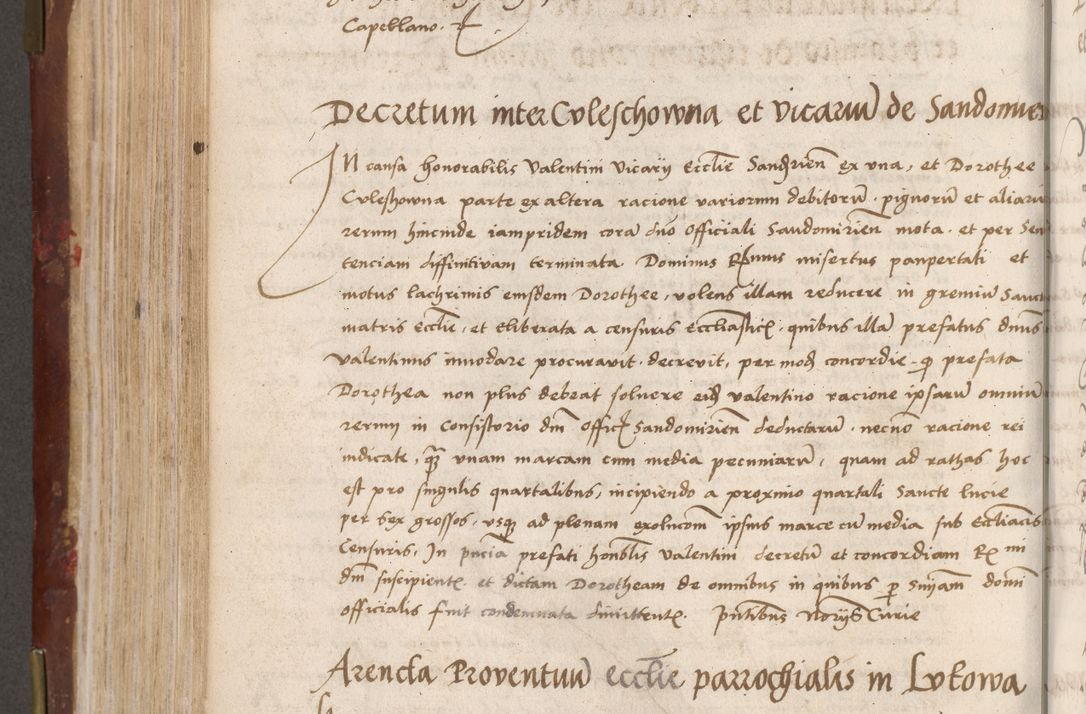 Capellano.
Decretum inter Culeschowna et vicariu de Sandomie
In causa honorabilis Valentini Vicarij Ecclie Sandrien ex una, et Dorothee
Culeshowna parte ex altera racione variorum debitoru pignoru et aliaru
rerum hincinde iampridem cora dno Officiali Sandomirien mota. et per Sen
tenciam diffinitivam terminata. Dominus Rssimus misertus paupertati et
motus lachrimis eiusdem Dorothee, volens illam reducere in gremiu Sancte
matris Ecclie, et eliberata a censuris Ecclasticis quibus illa prefatus dnus
Valentinus innodare procuravit. decrevit, per mod concordie q prefata
Dorothea non plus debeat solvere eid valentino racione ipsaru omniu
rerum in Consistorio dni Offic Sandomirien deductaru. necno racione rei
iudicate, q unam marcam cum media pecuniaru, quam ad rathas hoc
est pro singulis quartalibus, incipiendo a proximo quartali Sancte lucie
per sex grossos, usq ad plenam exolucom ipsius marce cu media sub Eccliacis
Censuris, In pncia prefati honblis Valentini decretu et concordiam R mi
dni suscipient. et dictam Dorotheam de omnibus in quibus p sniam domi
officialis fuit condemnata dimittent. Pntibus Norijs Curie
Arencta Proventuu ecclie parrochialis in Lukowa